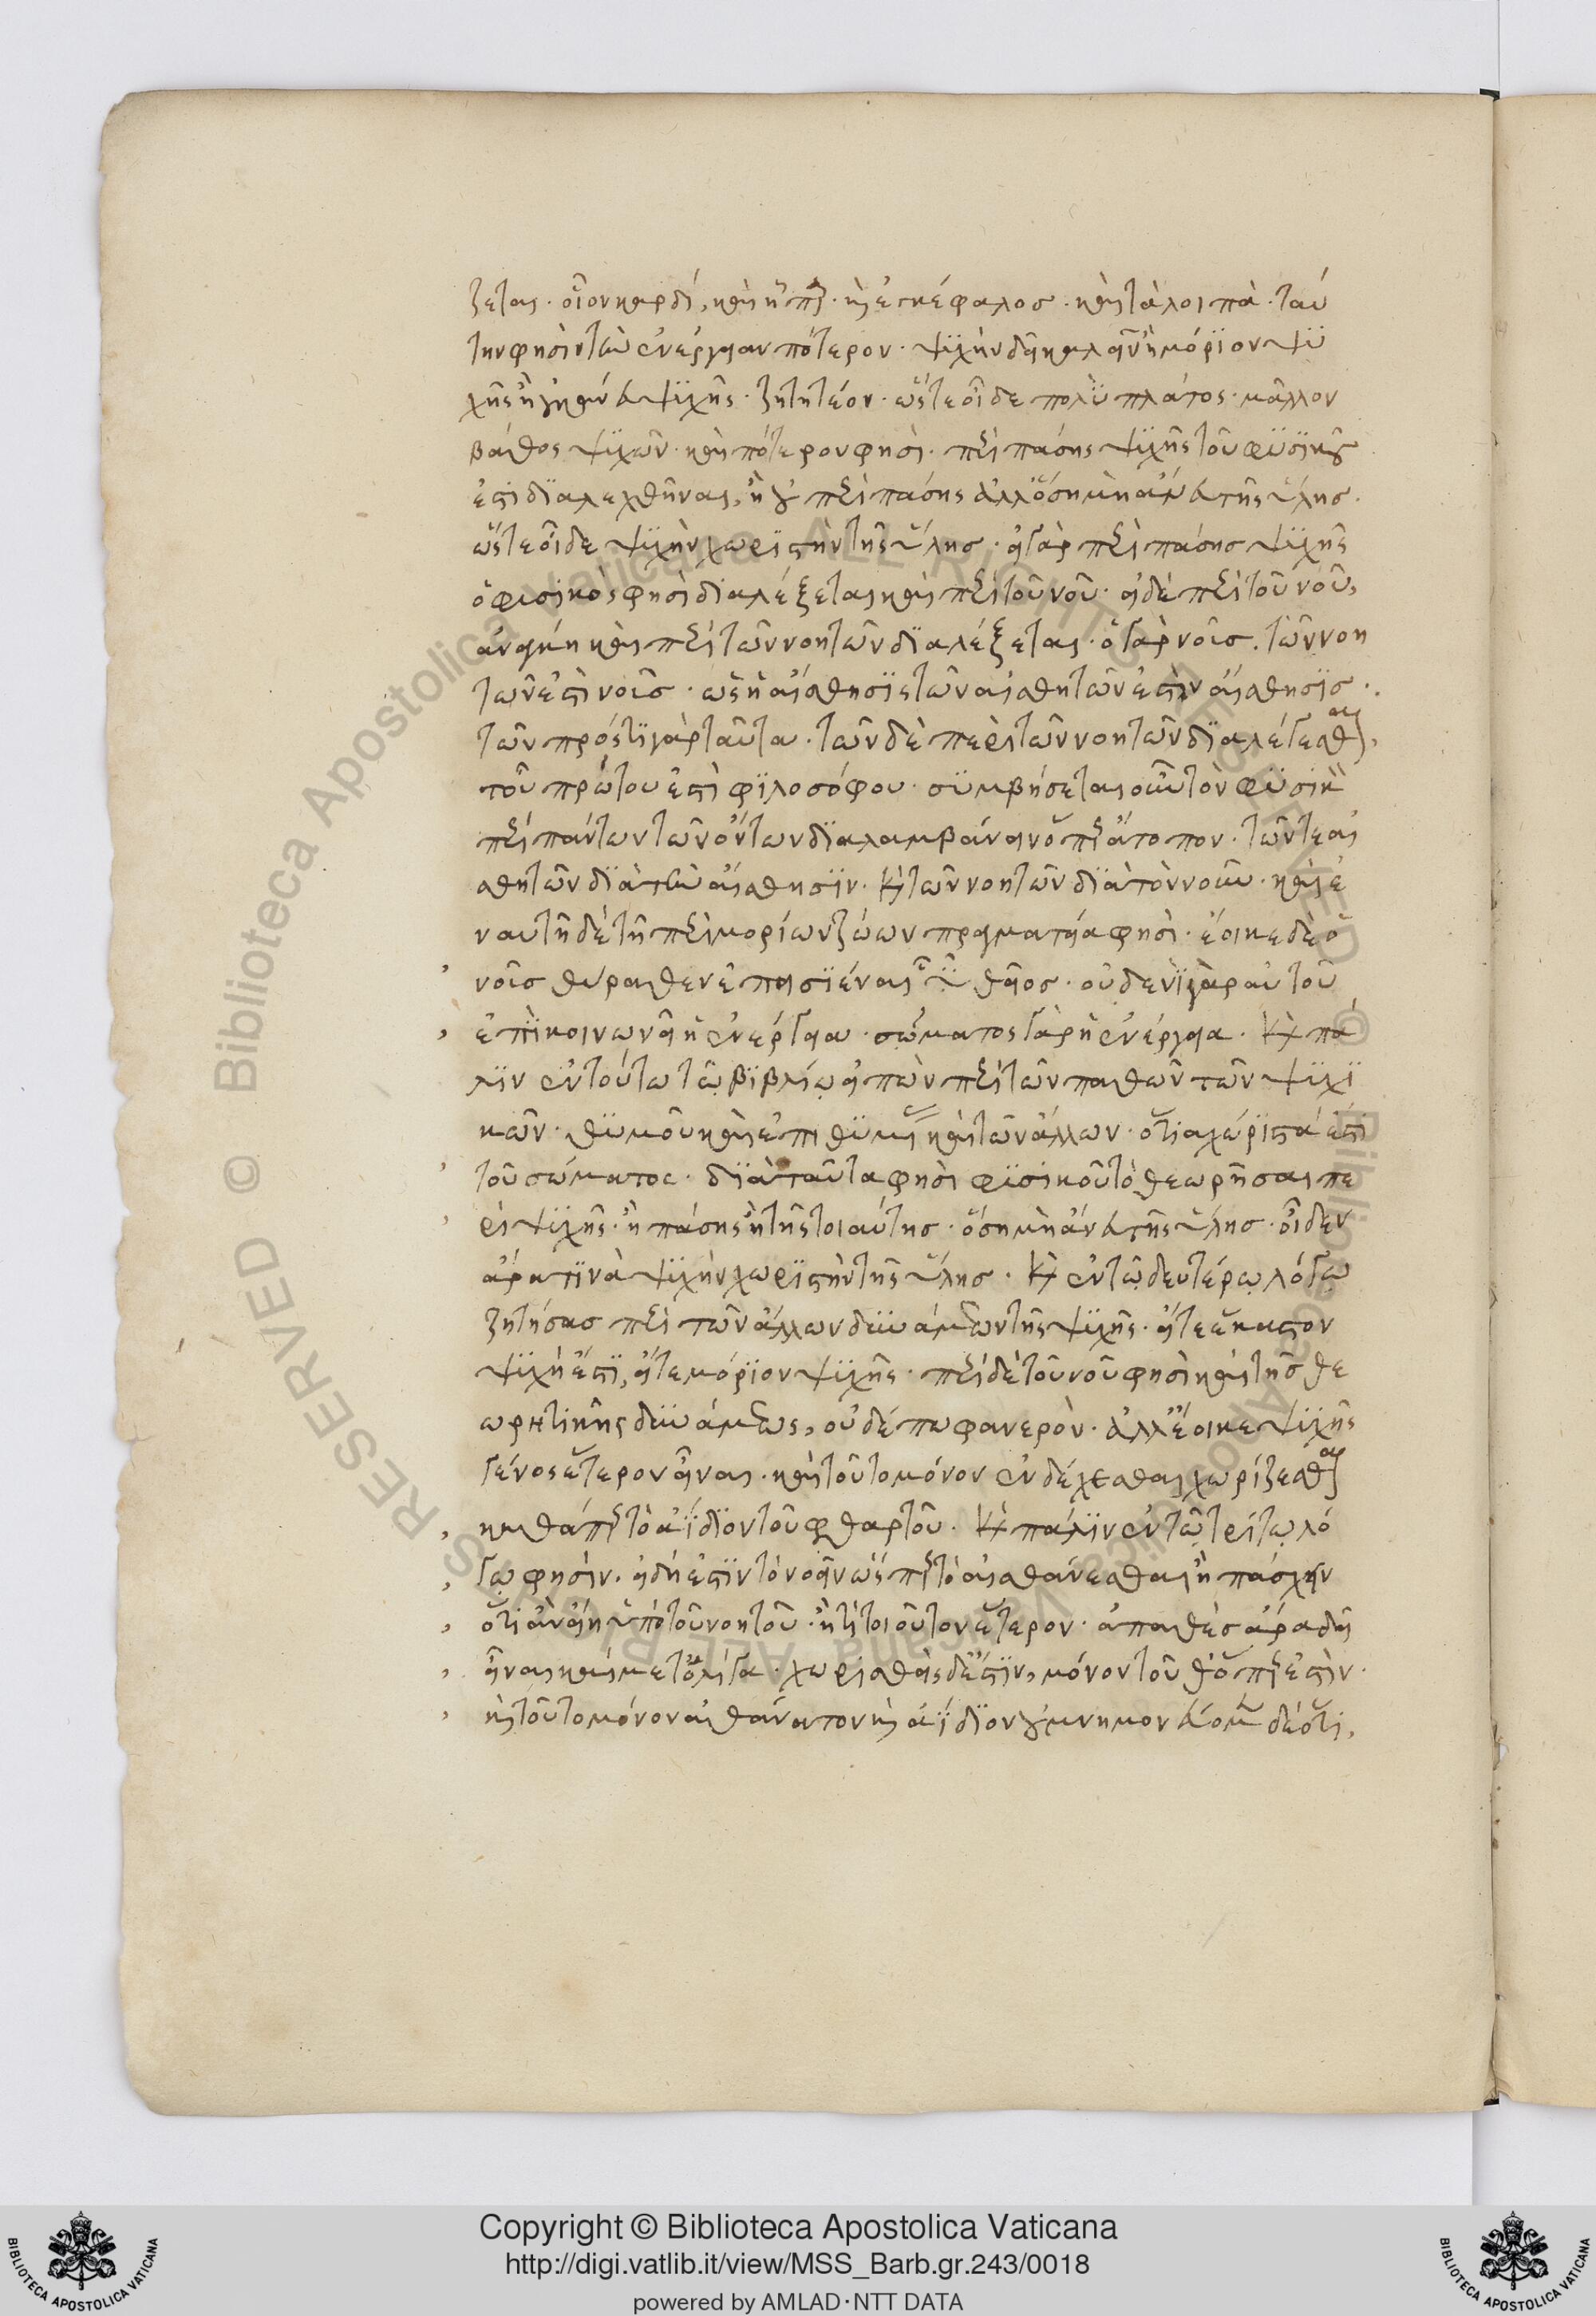 ζεται· οἷον καρδία, καὶ ἧπαρ· καὶ ἐγκέφαλος· καὶ τὰ λοιπὰ· ταύ
την φησὶ τὴν ἐνέργειαν πότερον· ψυχὴν δεῖ καλεῖν ἢ μόριον ψυ
χῆς ἢ οὐκ ἄνευ ψυχῆς· ζητητέον· ὥστε οἶδε πολὺ πλάτος· μᾶλλον
βάθος ψυχῶν· καὶ πότερον φησὶ· περὶ πάσης ψυχῆς τοῦ φυσικοῦ
ἐστὶ διαλεχθῆναι, ἢ οὐ περὶ πάσης ἀλλ' ὅση μὴ ἄνευ τῆς ὕλης·
ὥστε οἶδε ψυχὴν χωριστὴν τῆς ὕλης· εἰ γὰρ περὶ πάσης ψυχῆς
ὁ φυσικὸς φησὶ διαλέξεται καὶ περὶ τοῦ νοῦ· εἰ δὲ περὶ τοῦ νοῦ,
ἀνάγκη καὶ περὶ τῶν νοητῶν διαλέξεται· ὁ γὰρ νοῦς· τῶν νοη
τῶν ἐστὶ νοῦς· ὡς ἡ αἴσθησις τῶν αἰσθητῶν ἐστὶν αἴσθησις·
τῶν πρός τι γὰρ ταῦτα· τῶν δὲ περὶ τῶν νοητῶν διαλέγεσθαι,
τοῦ πρώτου ἐστὶ φιλοσόφου· συμβήσεται οὖν τὸν φυσικὸν
περὶ πάντων τῶν ὄντων διαλαμβάνειν ὅπερ ἄτοπον· τῶν τε αἰ
σθητῶν διὰ τὴν αἴσθησιν· καὶ τῶν νοητῶν διὰ τὸν νοῦν· καὶ ἐ
ν αὐτῇ δὲ τῇ περὶ μορίων ζώων πραγματείᾳ φησὶ· ἔοικε δὲ ὁ
νοῦς θύραθεν ἐπεισιέναι θεῖος· οὐδενὶ γὰρ αὐτοῦ
ἐπικοινωνεῖ ἡ ἐνέργεια· σώματος γὰρ ἡ ἐνέργεια· καὶ πά
λιν ἐν τούτω τῶ βιβλίω εἰπὼν περὶ τῶν παθῶν τῶν ψυχι
κῶν· θυμοῦ καὶ ἐπιθυμίας καὶ τῶν ἄλλων· ὅτι ἀχώριστά ἐστι
τοῦ σώματος· διὰ ταῦτα φησὶ φυσικοῦ τὸ θεωρῆσαι πε
ρὶ ψυχῆς· ἢ πάσης ἢ τῆς τοιαύτης· ὅση μὴ ἄνευ τῆς ὕλης· οἶδεν
ἄρα τινὰ ψυχὴν χωριστὴν τῆς ὕλης· καὶ ἐν τῷ δευτέρῳ λόγῳ
ζητήσας περὶ τῶν ἄλλων δυνάμεων τῆς ψυχῆς· εἴτε ἕκαστον
ψυχή ἐστι, εἴτε μόριον ψυχῆς· περὶ δὲ τοῦ νοῦ φησὶ καὶ τῆς θε
ωρητικῆς δυνάμεως, οὐδέπω φανερὸν· ἀλλ' ἔοικε ψυχῆς
γένος ἕτερον εἶναι· καὶ τοῦτο μόνον ἐνδέχεσθαι χωρίζεσθαι
καθάπερ τὸ ἀΐδιον τοῦ φθαρτοῦ· καὶ πάλιν ἐν τῷ τρίτῳ λό
γῳ φησὶν· εἰ δή ἐστιν τὸ νοεῖν ὥσπερ τὸ αἰσθάνεσθαι ἢ πάσχειν
ὅτι ἂν εἴη ὑπὸ τοῦ νοητοῦ· ἤ τι τοιοῦτον ἕτερον· ἀπαθὲς ἄρα δεῖ
εἶναι καὶ μετ' ὀλίγα· χωρισθεὶς δέ ἐστιν, μόνον τοῦθ' ὅπερ ἐστὶν·
καὶ τοῦτο μόνον ἀθάνατον καὶ ἀΐδιον οὐ μνημονεύομεν δὲ ὅτι,
Copyright © Biblioteca Apostolica Vaticana
http://digi.vatlib.it/view/MSS_Barb.gr.243/0018
powered by AMLAD·NTT DATA